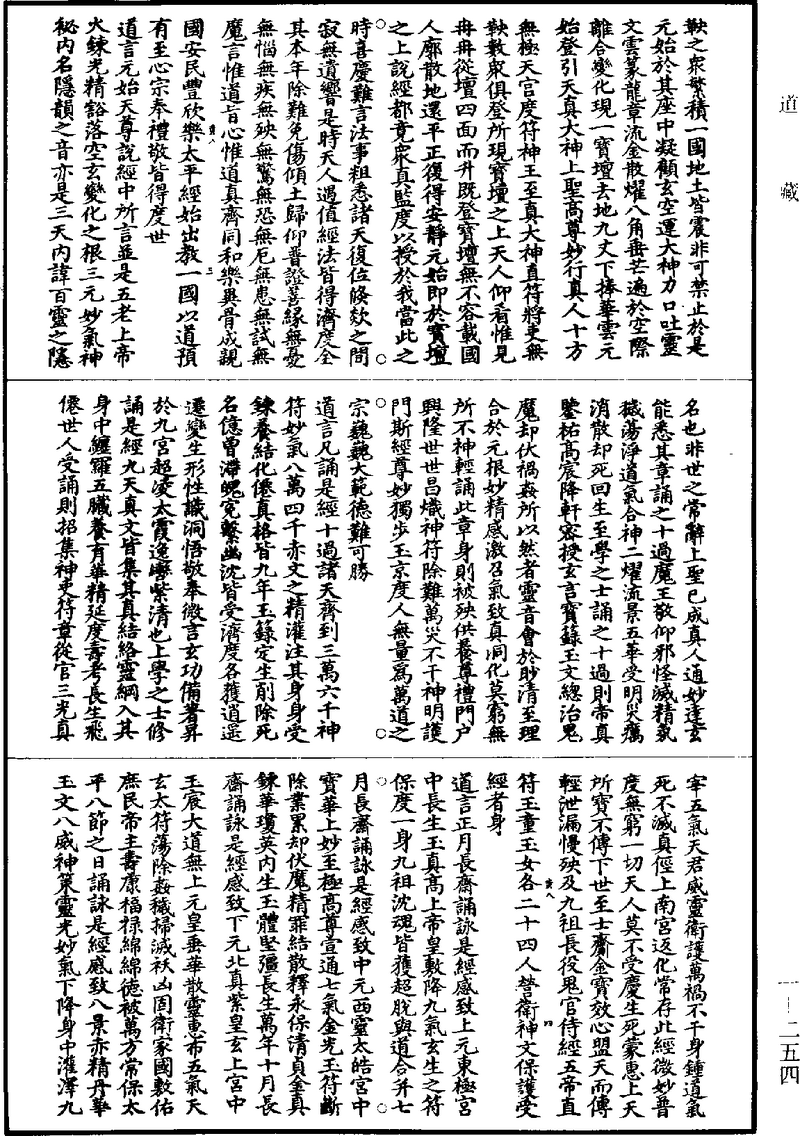 道藏
鞅之衆繁積一國地土皆震非可禁止於是
元始於其座中凝顧玄空運大神力口吐靈
文雲篆龍章流金散燿八角垂芒遍於空際
離合變化現一寶壇去地九丈下捧華雲元
始登引天真大神上聖高尊妙行真人十方
無極天官度符神王至真大神直符將吏無
鞅數衆俱登所現寶壇之上天人仰看惟見
冉冉從壇四面而升既登寶壇無不容載國
人廓散地還平正復得安靜元始即於寶壇
之上說經都竟衆真監度以授於我當此之
時喜慶難言法事粗悉諸天復位倏欻之間
寂無遺響是時天人遇值經法皆得濟度全
其本年除難免傷傾土歸仰普證善緣無憂
無惱無疾無殃無驚無恐無厄無患無試無
魔言惟道旨心惟道真齊同和樂異骨成親
國安民豐欣樂太平經始出教一國以道預
有至心宗奉禮敬皆得度世
道言元始天尊說經中所言並是五老上帝
火鍊光精豁落空玄變化之根三元妙氣神
祕內名隱韻之音亦是三天內諱百靈之隱
名也非世之常辭上聖已成真人通妙達玄
能悉其章誦之十過魔王敬仰邪怪滅精氛
穢蕩淨道氣合神二燿流景五華受明災癘
消散却死回生至學之士誦之十過則帝真
鑒祐高宸降軒密授玄言寶籙玉文總治鬼
魔却伏禍姦所以然者靈音會於眇清至理
合於元根妙精感激召氣致真洞化莫窮無
所不神輕誦此章身則被殃供養尊禮門户
興隆世世昌熾神符除難萬災不干神明護
門斯經尊妙獨步玉京度人無量爲萬道之
宗巍巍大範德難可勝
道言凡誦是經十過諸天齊到三萬六千神
符妙氣八萬四千赤文之精灌注其身身受
鍊養結化僊真格皆九年玉籙定生削除死
名億曾滯魄冤繫幽沈皆受濟度各獲逍遥
遷變生形性識洞悟敬奉微言玄功備著昇
於九宫超淩太霞逸轡紫清也上學之士修
誦是經九天真文皆集其真結絡靈綱入其
身中纏羅五臟養育華精延度壽考長生飛
僊世人受誦則招集神吏符章從官三光真
宰五氣天君威靈衛護萬禍不干身鍾道氣
死不滅真徑上南宫返化常存此經微妙普
度無窮一切天人莫不受慶生死蒙惠上天
所寶不傳下世至士齎金寶效心盟天而傳
輕泄漏慢殃及九祖長役鬼官侍經五帝直
符玉童玉女各二十四人營衛神文保護受
經者身
道言正月長齋誦詠是經感致上元東極宫
中長生玉真高上帝皇敷降九氣玄生之符
保度一身九祖沈魂皆獲超脫與道合并七
月長齋誦詠是經感致中元西靈太皓宫中
寶華上妙至極高尊壹通七氣金光玉符斷
除業累却伏魔精罪結散釋永保清貞金真
鍊華瓊英内生玉體堅彊長生萬年十月長
齋誦詠是經感致下元北真紫皇玄上宫中
玉宸大道無上元皇垂華散靈惠布五氣天
玄太符蕩除姦穢掃滅袄凶固衛家國敷佑
庶民帝主壽康福禄綿綿德被萬方常保太
平八節之日誦詠是經感致八景赤精丹華
玉文八威神策靈光妙氣下降身中灌澤九
一—二五四